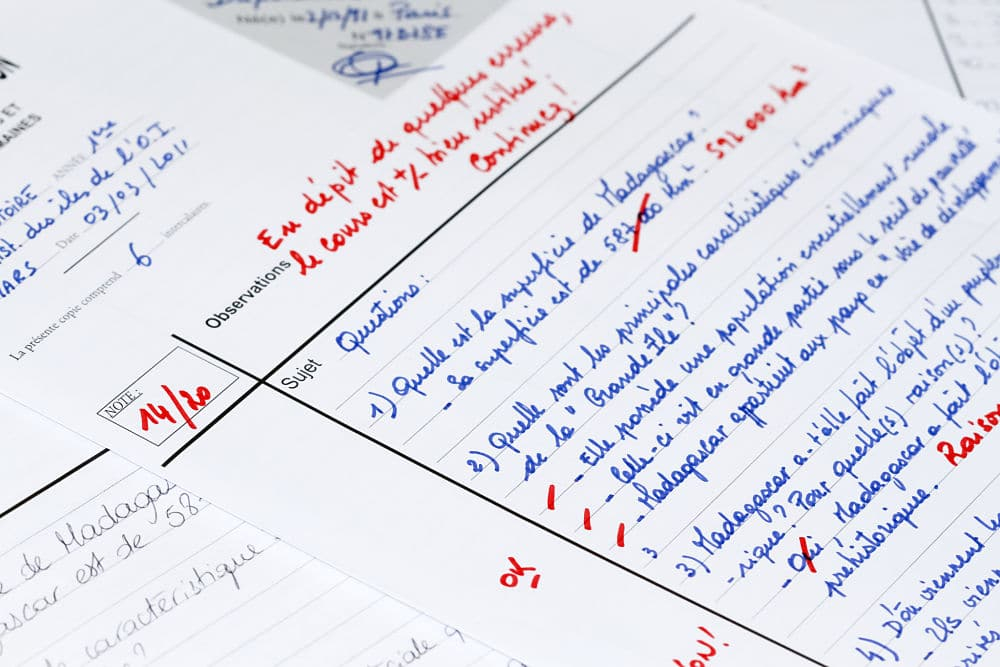 Paris
ON
ET
AINES
ANNÉE 1ère
TOIRE
st. des îles de l'O.I.
Date 03/03/2011
MARS
La présente copie comprend 6 intercalaires.
Observations
En dépit de quelques erreurs,
le cours est +/- bien restitué
Continuez!
NOTE:
14/20
Sujet
Questions:
1) Quelle est la superficie de Madagascar?
- Sa superficie est de 587 000 Km². 592 000 Km²
2) Quelle sont les principales caractéristiques économiques
de la "Grande Île"?
- Elle possède une population essentiellement rurale
- Celle-ci vit en grande partie sous le seuil de pauvreté
- Madagascar apartient aux pays en "Voie de développem
3
3) Madagascar a-t-elle fait l'objet d'un peuple
-rique? Pour quelle(s) raison(s)?
- Oui, Madagascar a fait l'ob
préhistorique.
Raison
OK
4) D'où viennent l
- Ils vien
ON!
e de Madagas
ascar est de 58
caractéristique
?
iale ?